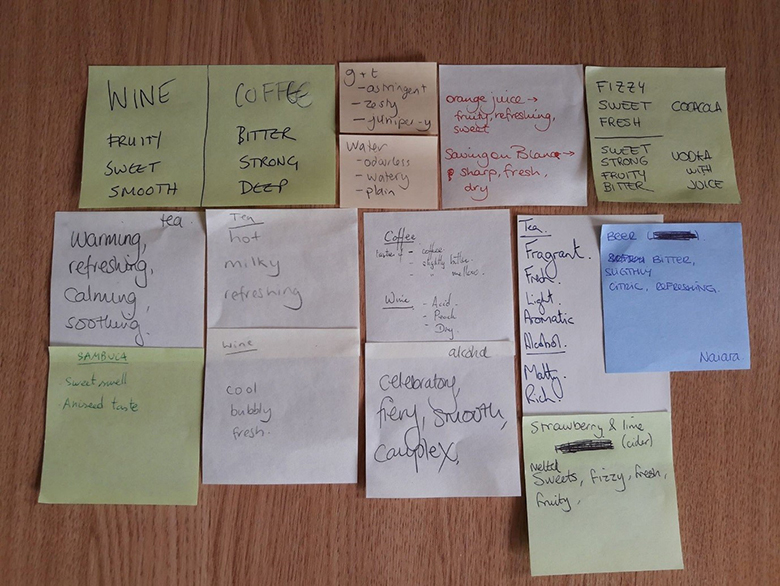 WINE
FRUITY
SWEET
SMOOTH
COFFEE
BITTER
STRONG
DEEP
g+t
- astringent
- zesty
- juniper-y
Water
- odourless
- watery
- plain
orange juice →
fruity, refreshing,
sweet
Sauvignon Blanc →
sharp, fresh,
dry
FIZZY
SWEET
FRESH
COCACOLA
SWEET
STRONG
FRUITY
BITTER
VODKA
WITH
JUICE
tea
Warming,
refreshing,
Calming,
soothing.
Tea
hot
milky
refreshing
Coffee
- coffee
- slightly bitter
- " mellow.
Wine - Acid.
- Peach
- Dry.
Tea.
Fragrant.
Fresh.
Light.
Aromatic
Alcohol.
Malty.
Rich.
BEER (
BITTER,
SLIGTHLY
CITRIC, REFRESHING.
Naiara
SAMBUCA
Sweet smell
Aniseed taste
Wine
cool
bubbly
fresh.
alcohol
Celebratory,
fiery, smooth,
complex.
Strawberry & lime
(cider)
melted
Sweets, fizzy, fresh,
fruity,